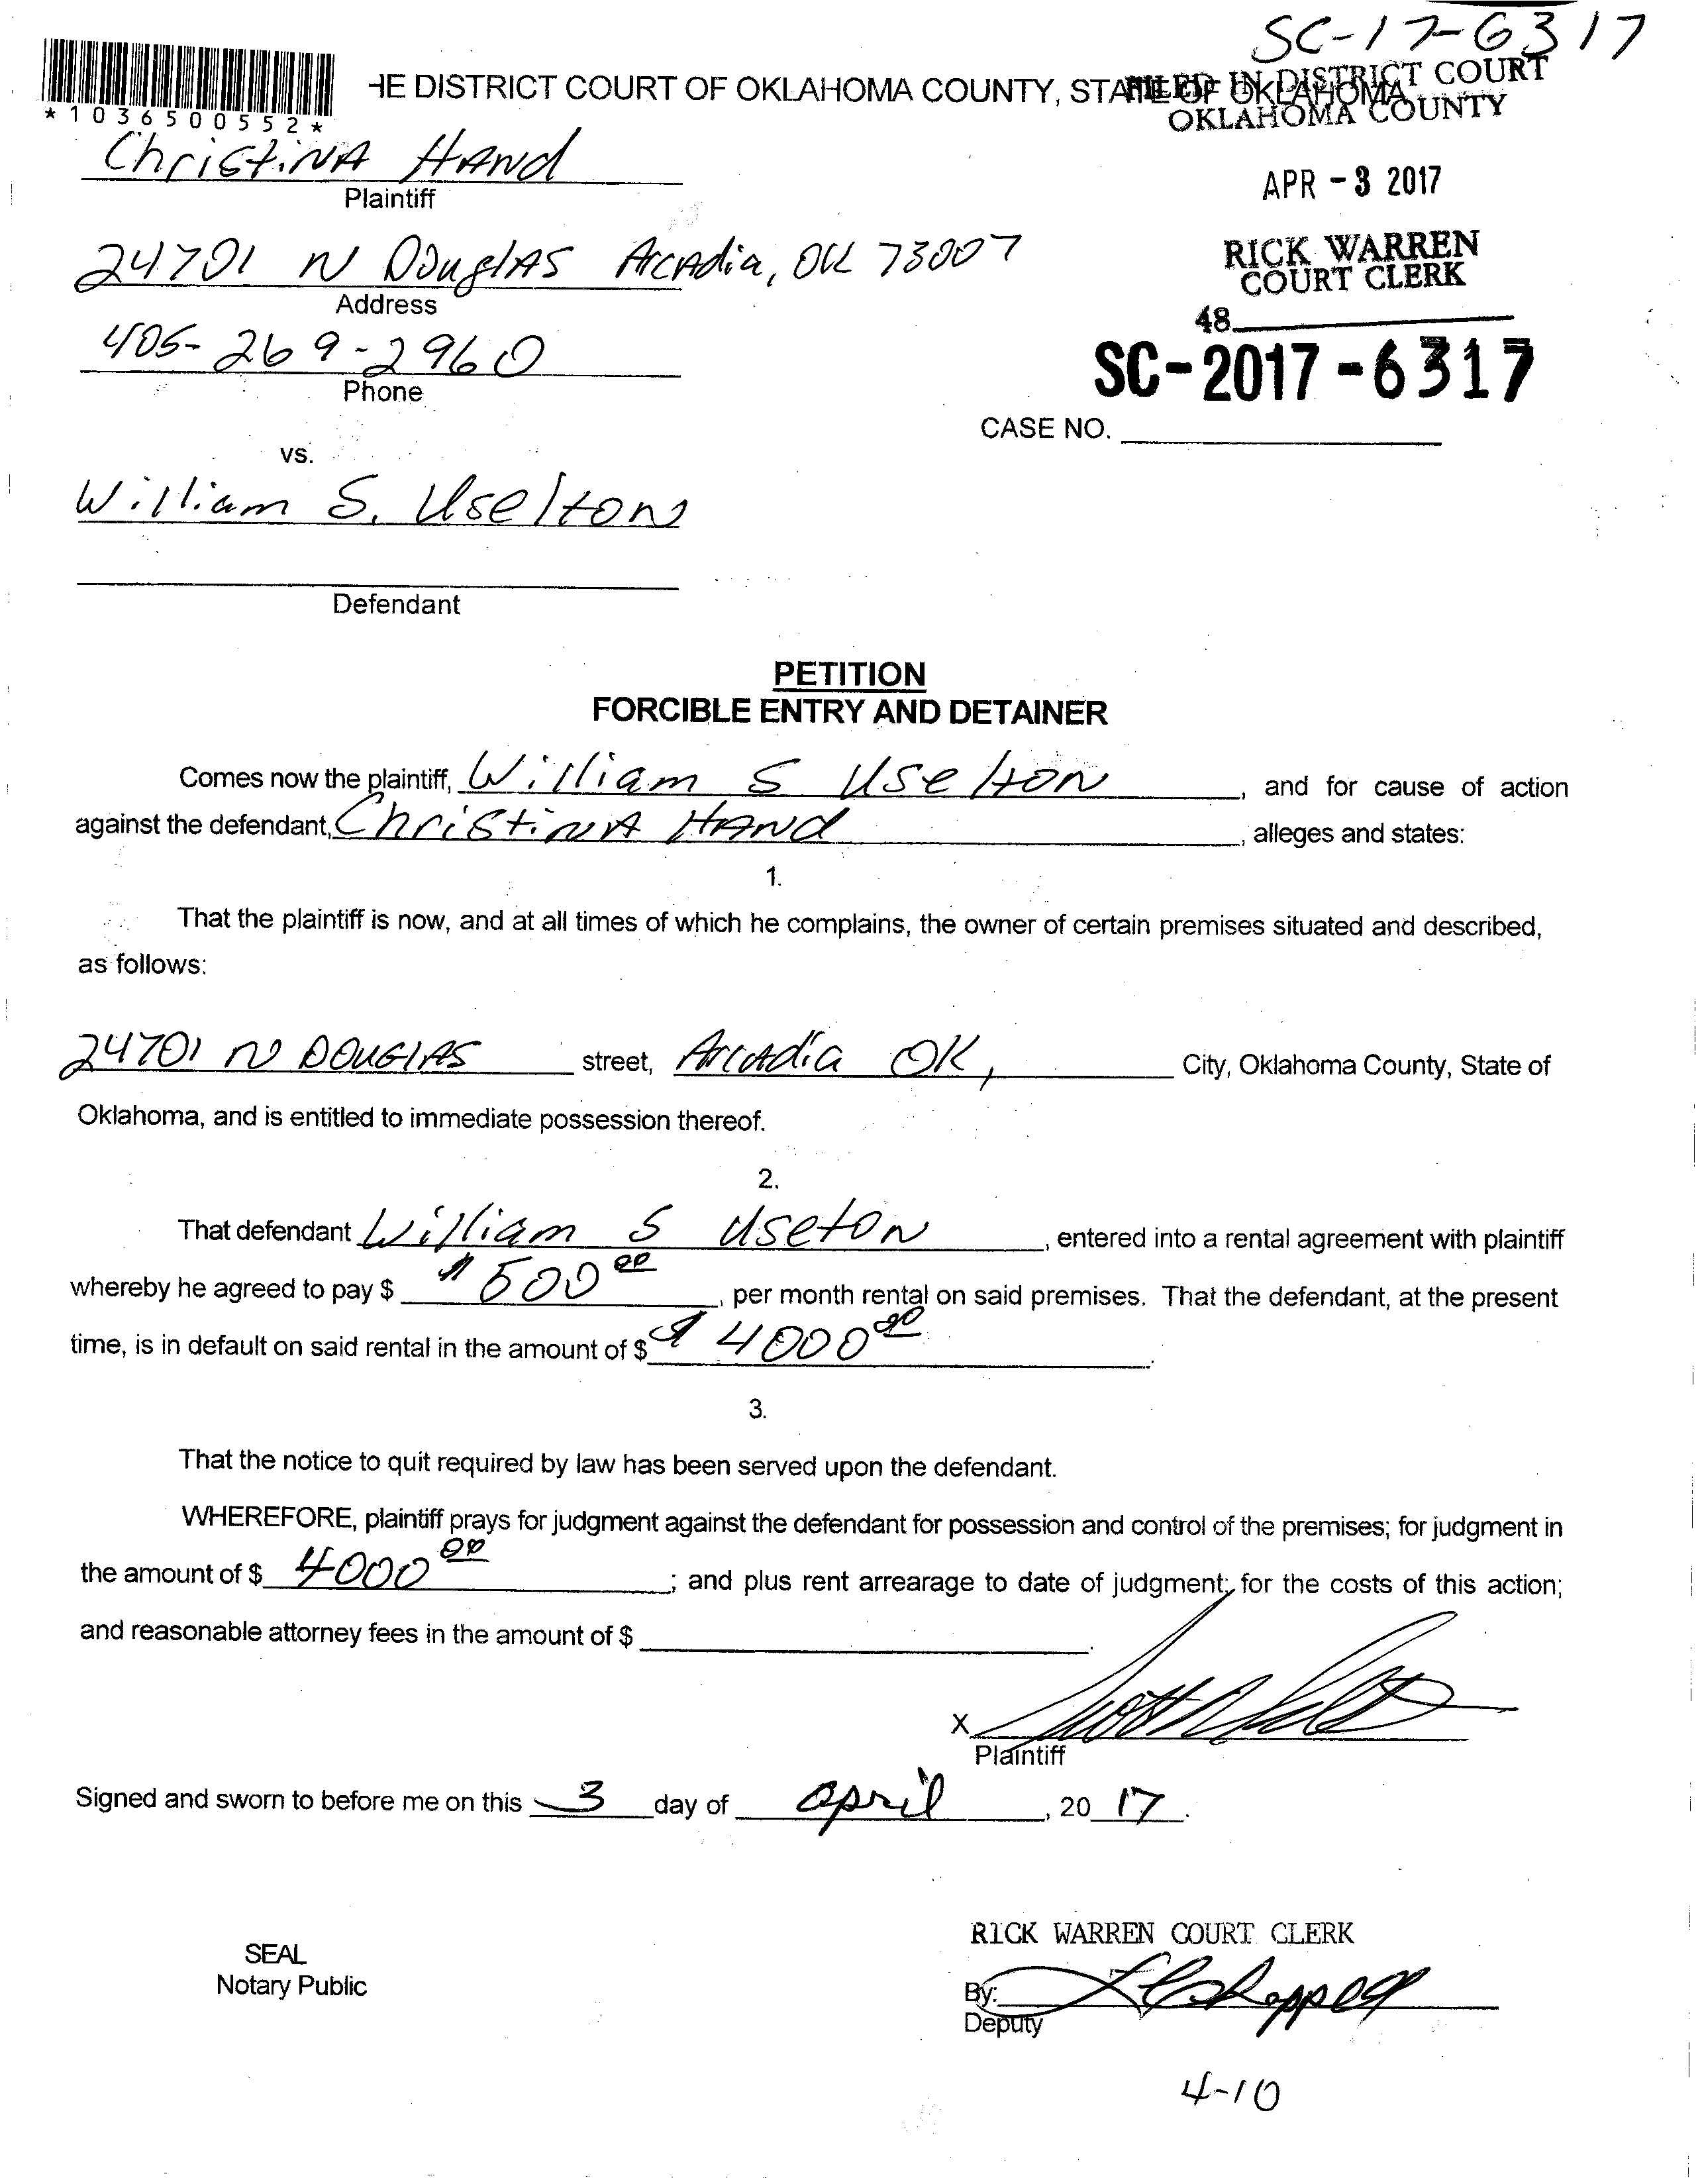 SC-17-6317
*1036500552*
HE DISTRICT COURT OF OKLAHOMA COUNTY, STATE OF OKLAHOMA
FILED IN DISTRICT COURT
OKLAHOMA COUNTY
ChristiNA HANd
Plaintiff
APR - 3 2017
24701 N DOuglAS ArcAdia, OK 73007
Address
RICK WARREN
COURT CLERK
48
405-269-2960
Phone
SC-2017-6317
CASE NO.
vs.
William S. UseltoN
Defendant
PETITION
FORCIBLE ENTRY AND DETAINER
Comes now the plaintiff, William S UseltoN, and for cause of action
against the defendant, ChristiNA HANd, alleges and states:
1.
That the plaintiff is now, and at all times of which he complains, the owner of certain premises situated and described,
as follows:
24701 N DOUGlAS street, ArcAdia OK, City, Oklahoma County, State of
Oklahoma, and is entitled to immediate possession thereof.
2.
That defendant William S UsetoN, entered into a rental agreement with plaintiff
whereby he agreed to pay $ $500.00, per month rental on said premises. That the defendant, at the present
time, is in default on said rental in the amount of $ $4000.00.
3.
That the notice to quit required by law has been served upon the defendant.
WHEREFORE, plaintiff prays for judgment against the defendant for possession and control of the premises; for judgment in
the amount of $ 4000.00; and plus rent arrearage to date of judgment; for the costs of this action;
and reasonable attorney fees in the amount of $
X
Plaintiff
Signed and sworn to before me on this 3 day of april, 20 17.
RICK WARREN COURT CLERK
SEAL
Notary Public
By:
Deputy
4-10